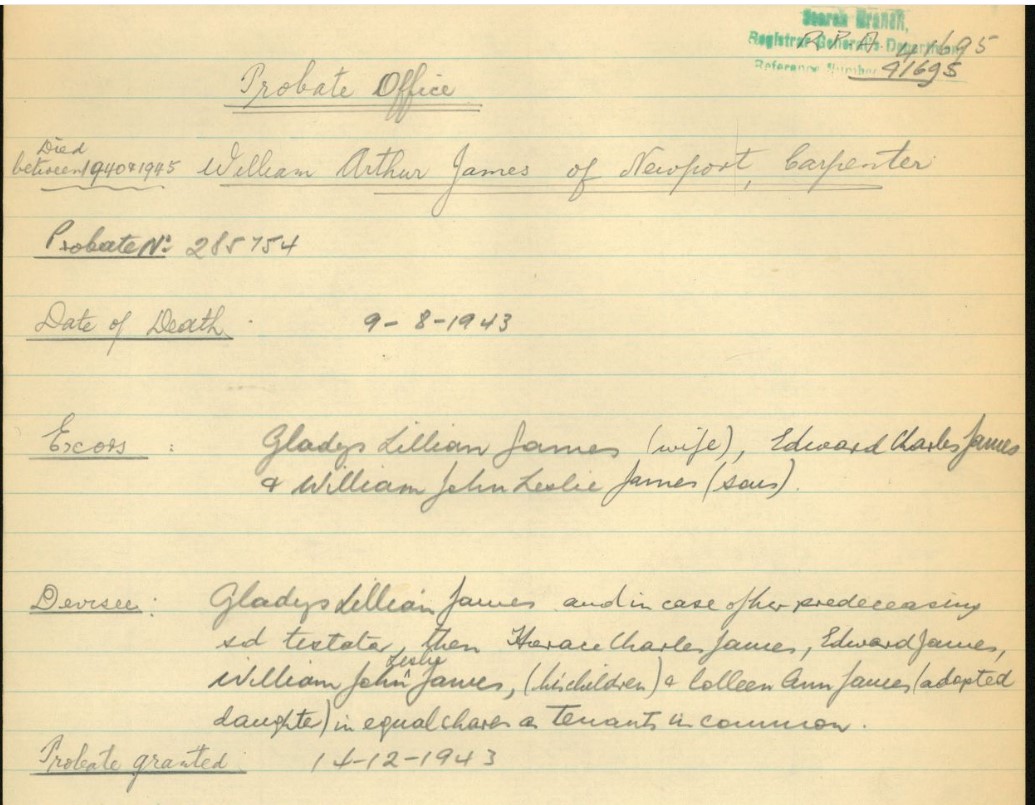 Search Branch,
Registrar General's Department
R.P.A. 41695
Reference Number 41695
Probate Office
Died
between 1940 & 1945 William Arthur James of Newport, Carpenter
Probate No: 285754
Date of Death. 9-8-1943
Excors : Gladys Lillian James (wife), Edward Charles James
& William John Leslie James (sons).
Devisee: Gladys Lillian James and in case of her predeceasing
sd testator, then Horace Charles James, Edward James,
William John Leslie James, (his children) & Colleen Ann James (adopted
daughter) in equal shares as tenants in common.
Probate granted 14-12-1943